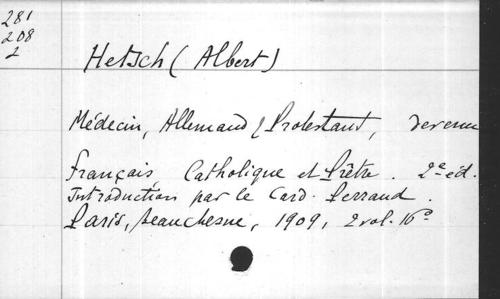 281
208
2
Hetsch (Albert)
Médecin, Allemand, Protestant, devenu
français, Catholique et Prêtre. 2e éd.
Introduction par le Card. Perraud.
Paris, Beauchesne, 1909, 2 vol. 16°